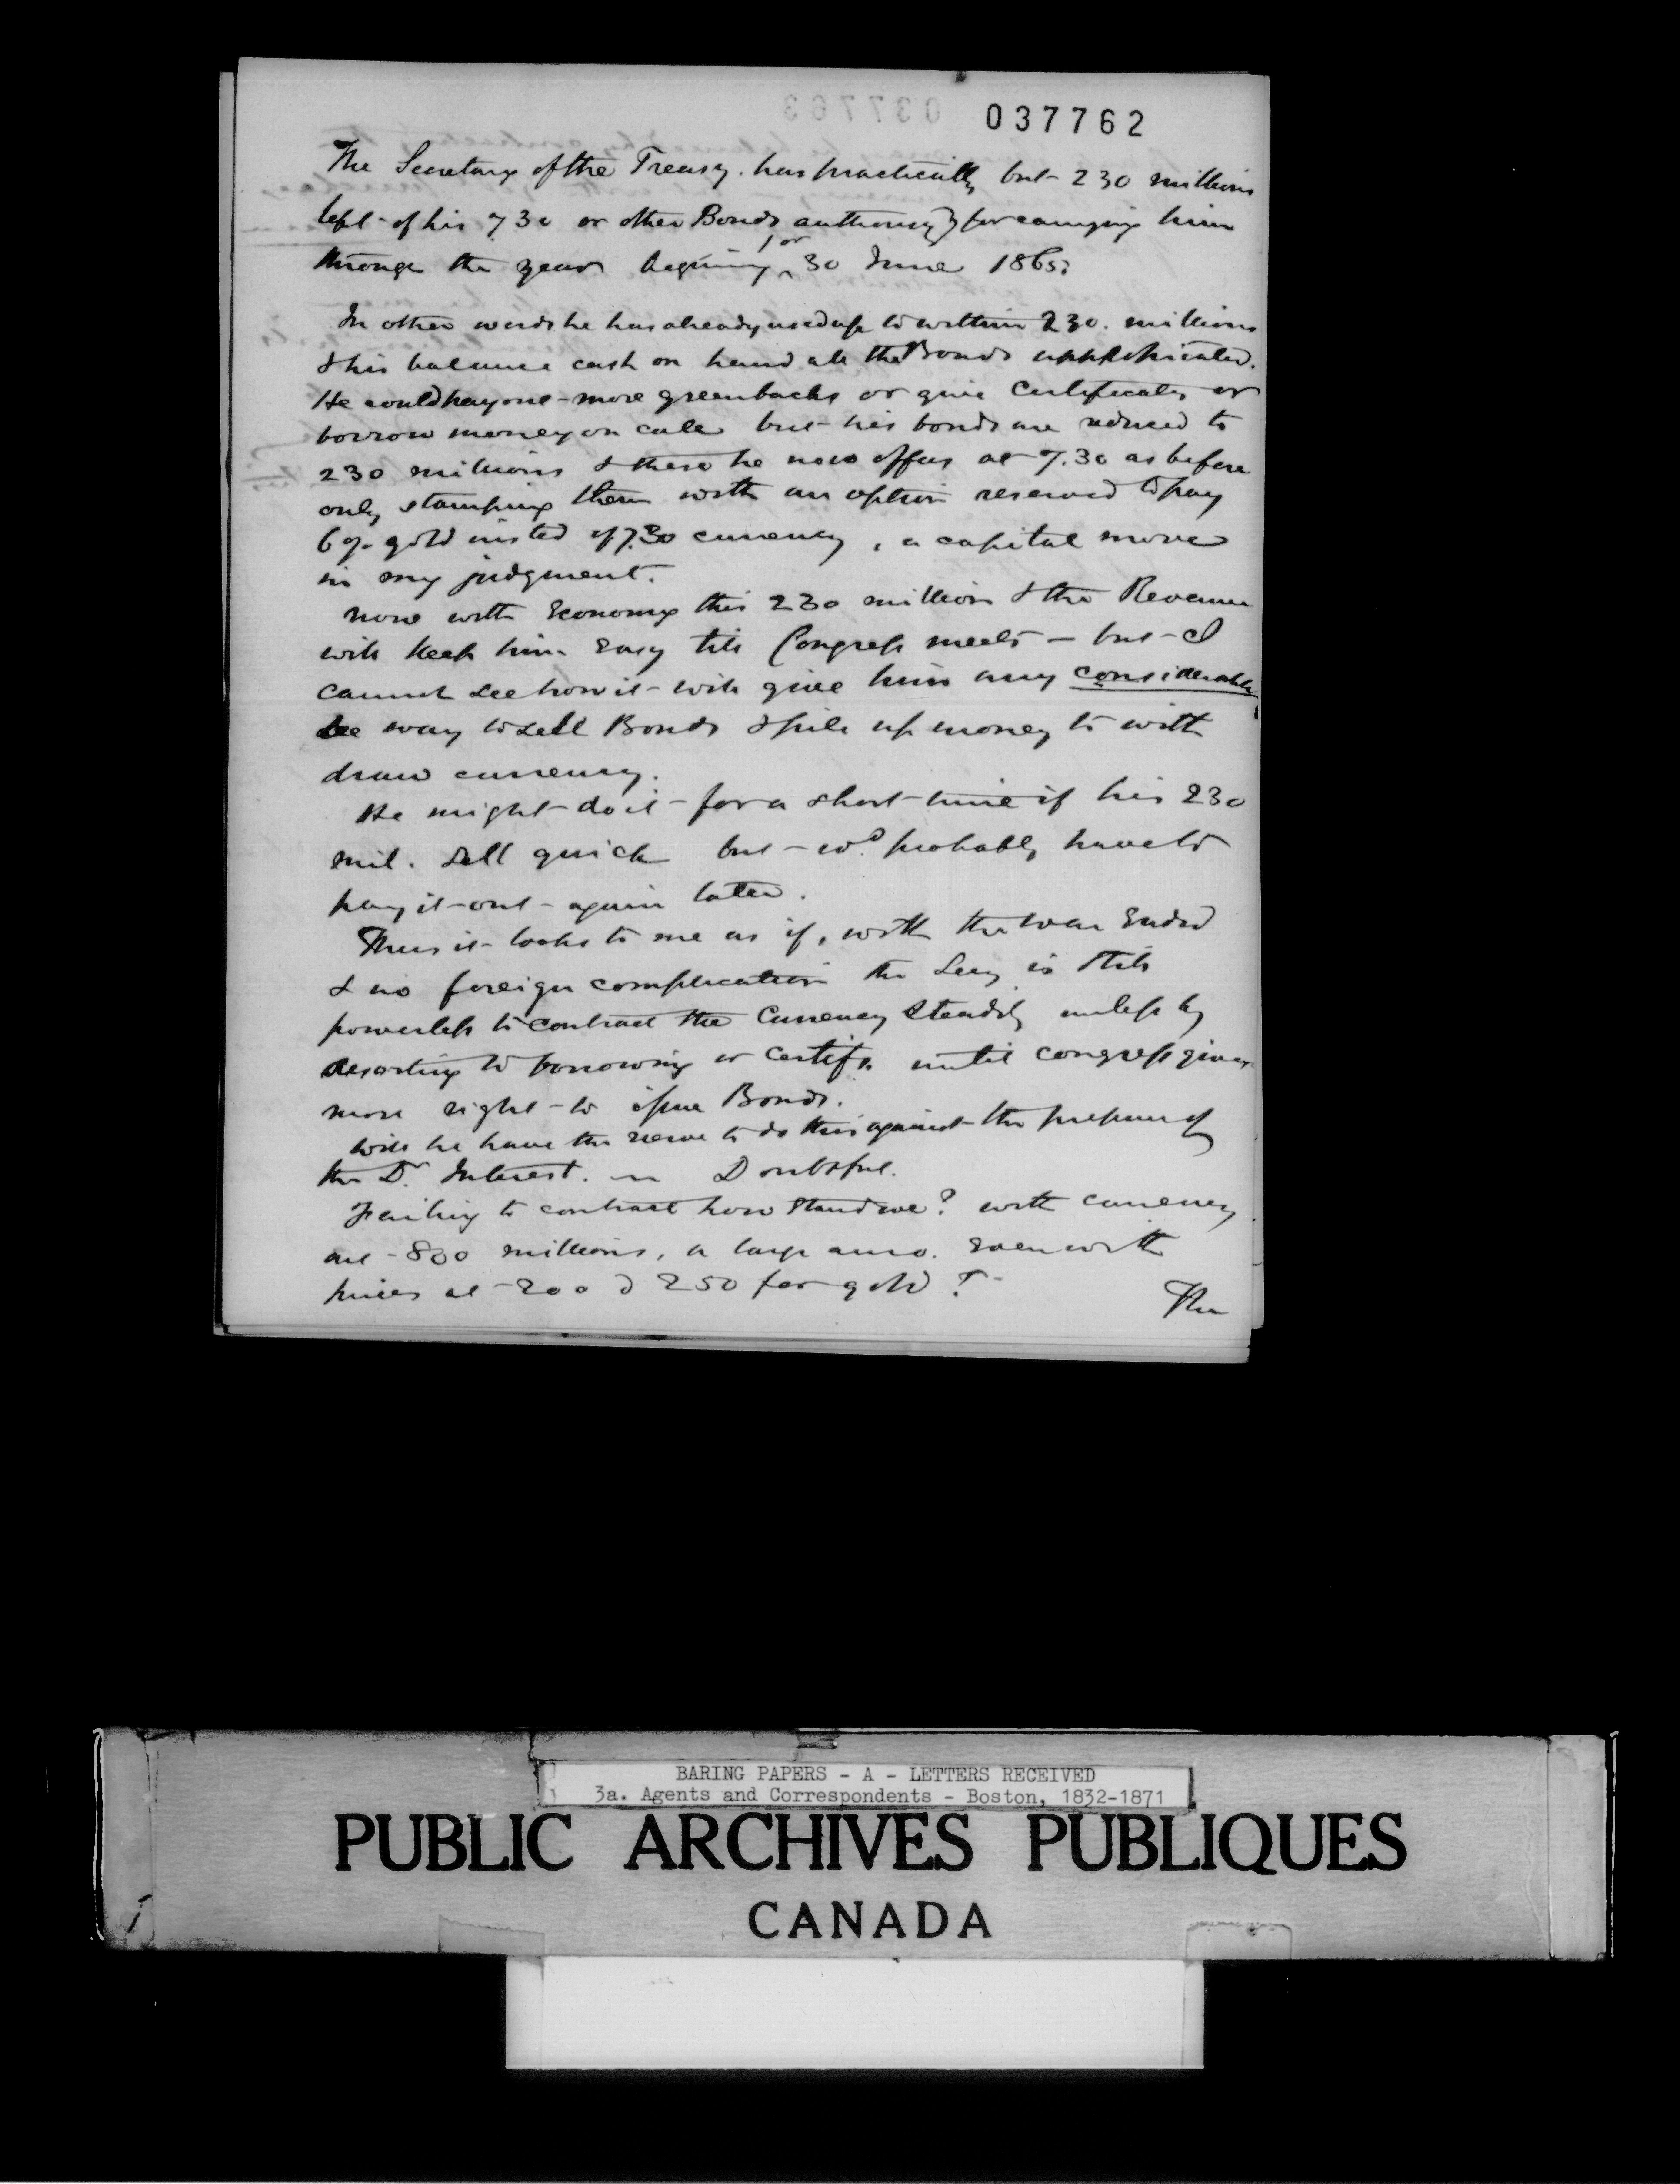 037762
The Secretary of the Treasy. has practically but 230 millions
left of his 7 30 or other Bonds authority for carrying him
through the year begining 30 June 1865;
or
In other words he has already used up to within 230. millions
& his balance cash on hand all the Bonds
He could pay out more greenbacks or give Certificates or
borrow money on call but his bonds are reduced to
230 millions & these he now offers at 7.30 as before
only stamping them with an option reserved to pay
6 % gold insted of 7.30 currency, a capital move
in my judgment.
Now with Economy this 230 million & the Revenue
will keep him Easy till Congress meets — but I
cannot see how it will give him any considerable
way to sell Bonds & pile up money to with
draw currency.
He might do it for a short time if his 230
mil. sell quick but wd. probably have to
pay it out again later.
Thus it looks to me as if, with the war Ended
& no foreign complication the Secy is still
powerless to contract the Currency steadily unless by
resorting to borrowing or Certifs. until congress gives
more right to issue Bonds.
Will he have the nerve to do this against the pressure of
the Dr. Interest. Doubtful.
Failing to contract how stand we? with currency
at 800 millions, a large amo. Even with
prices at 200 @ 250 for gold?
The
BARING PAPERS - A - LETTERS RECEIVED
3a. Agents and Correspondents - Boston, 1832-1871
PUBLIC ARCHIVES PUBLIQUES
CANADA